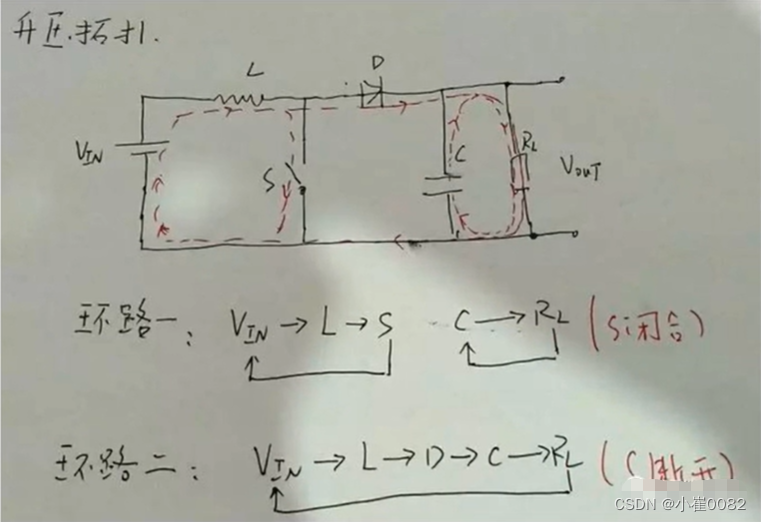 升压拓扑.
L D
VIN S C RL VOUT
环路一: VIN → L → S C → RL (S闭合)
环路二: VIN → L → D → C → RL (S断开)
CSDN @小崔0082